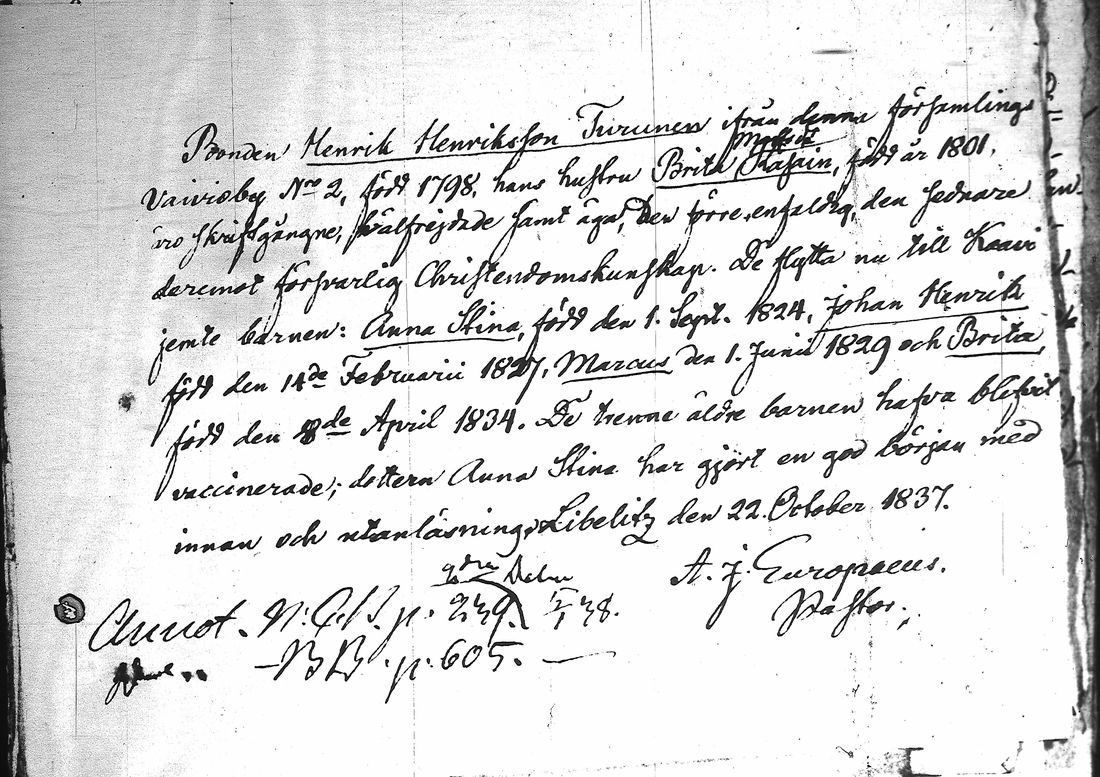 Bonden Henrik Henriksson Turunen ifrån denna församlings
Matsdr
Vaivioby Nro 2, född 1798, hans hustru Brita Kasain, född år 1801,
äro skriftgångne, välfrejdade samt äga, den förre, enfaldig, den sednare
deremot försvarlig Christendomskunskap. De flytta nu till Kaavi
jemte barnen: Anna Stina, född den 1. Sept. 1824, Johan Henrik
född den 14de Februarii 1827, Marcus den 1. Junii 1829 och Brita,
född den 8de April 1834. De trenne äldre barnen hafva blifvit
vaccinerade; dottern Anna Stina har gjort en god början med
innan och utanläsning, Libelitz den 22. October 1837.
A. J. Europaeus.
Pastor.
Annot. N. C. B. p. 239. 38.
B B. p. 605.